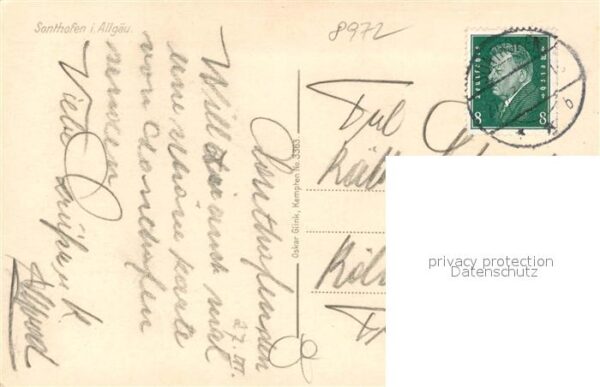 Sonthofen i. Allgäu.
8972
Sonthofen den
27. III.
Will dir auch mal
eine schöne Karte
von Sonthofen
senden
Viele Grüße u. K
Alfred
Oskar Glink, Kempten No. 3363
Frl
Käth
Köln
8 8
privacy protection
Datenschutz